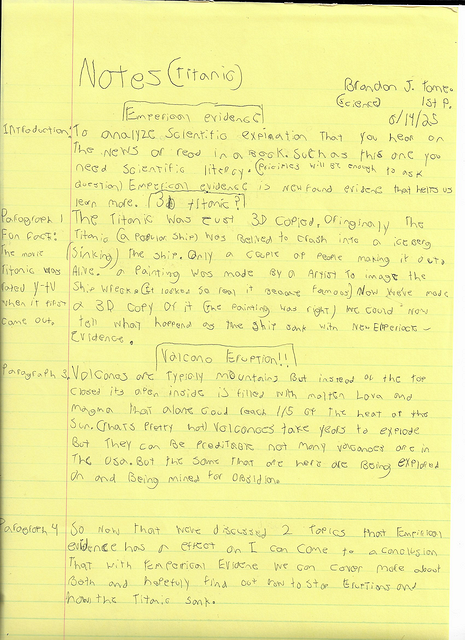 Notes (Titanic)
Brandon J. Tome.
(science) 1st P.
6/14/23
Emperical evidence
Introduction: To analyze Scientific expination That you hear on
The news or read in a Book. Such as this one you
need Scientific litercy. (Articles will be enough to ask
question) Emperical evidence is new found evidence that helps us
lern more. (3D titanic?)
Parograph 1 The Titanic was Just 3D Copied. Ofinginaly The
Fun Fact: Titanic (a popular ship) was Belived to Crash into a iceberg
The movie (Sinking) The ship. Only a Couple of People making it out
Titanic was Alive. a Painting was made By a Artist To image the
rated y-tv Ship wreck. (It looked so real it Became famous) Now We've made
when it first a 3D Copy of it (the Painting was right) we could now
came out. tell what happend as The ship sank with New Emperical -
Evidence.
Volcano Eruption!!
Paragraph 3. Volcanos are Typicly mountains But instead of the top
closed its open inside is filled with molten Lava and
magma That alone Coud reach 1/5 of The heat of the
Sun. (thats Pretty hot) Volcanoes take years to explode
But They can Be Preditable not many volcanoes are in
The USA. But the Some That are here are Being explored
on and Being mined for obsidion.
Paragraph 4 So Now That We've discussed 2 Topics that Emperical
evidence has an effect on I can Come to a conclusion
That with Emperical Evidene we can Cover more about
Both and hopefuly find out how to stop Eruptions and
how the Titanic Sank.